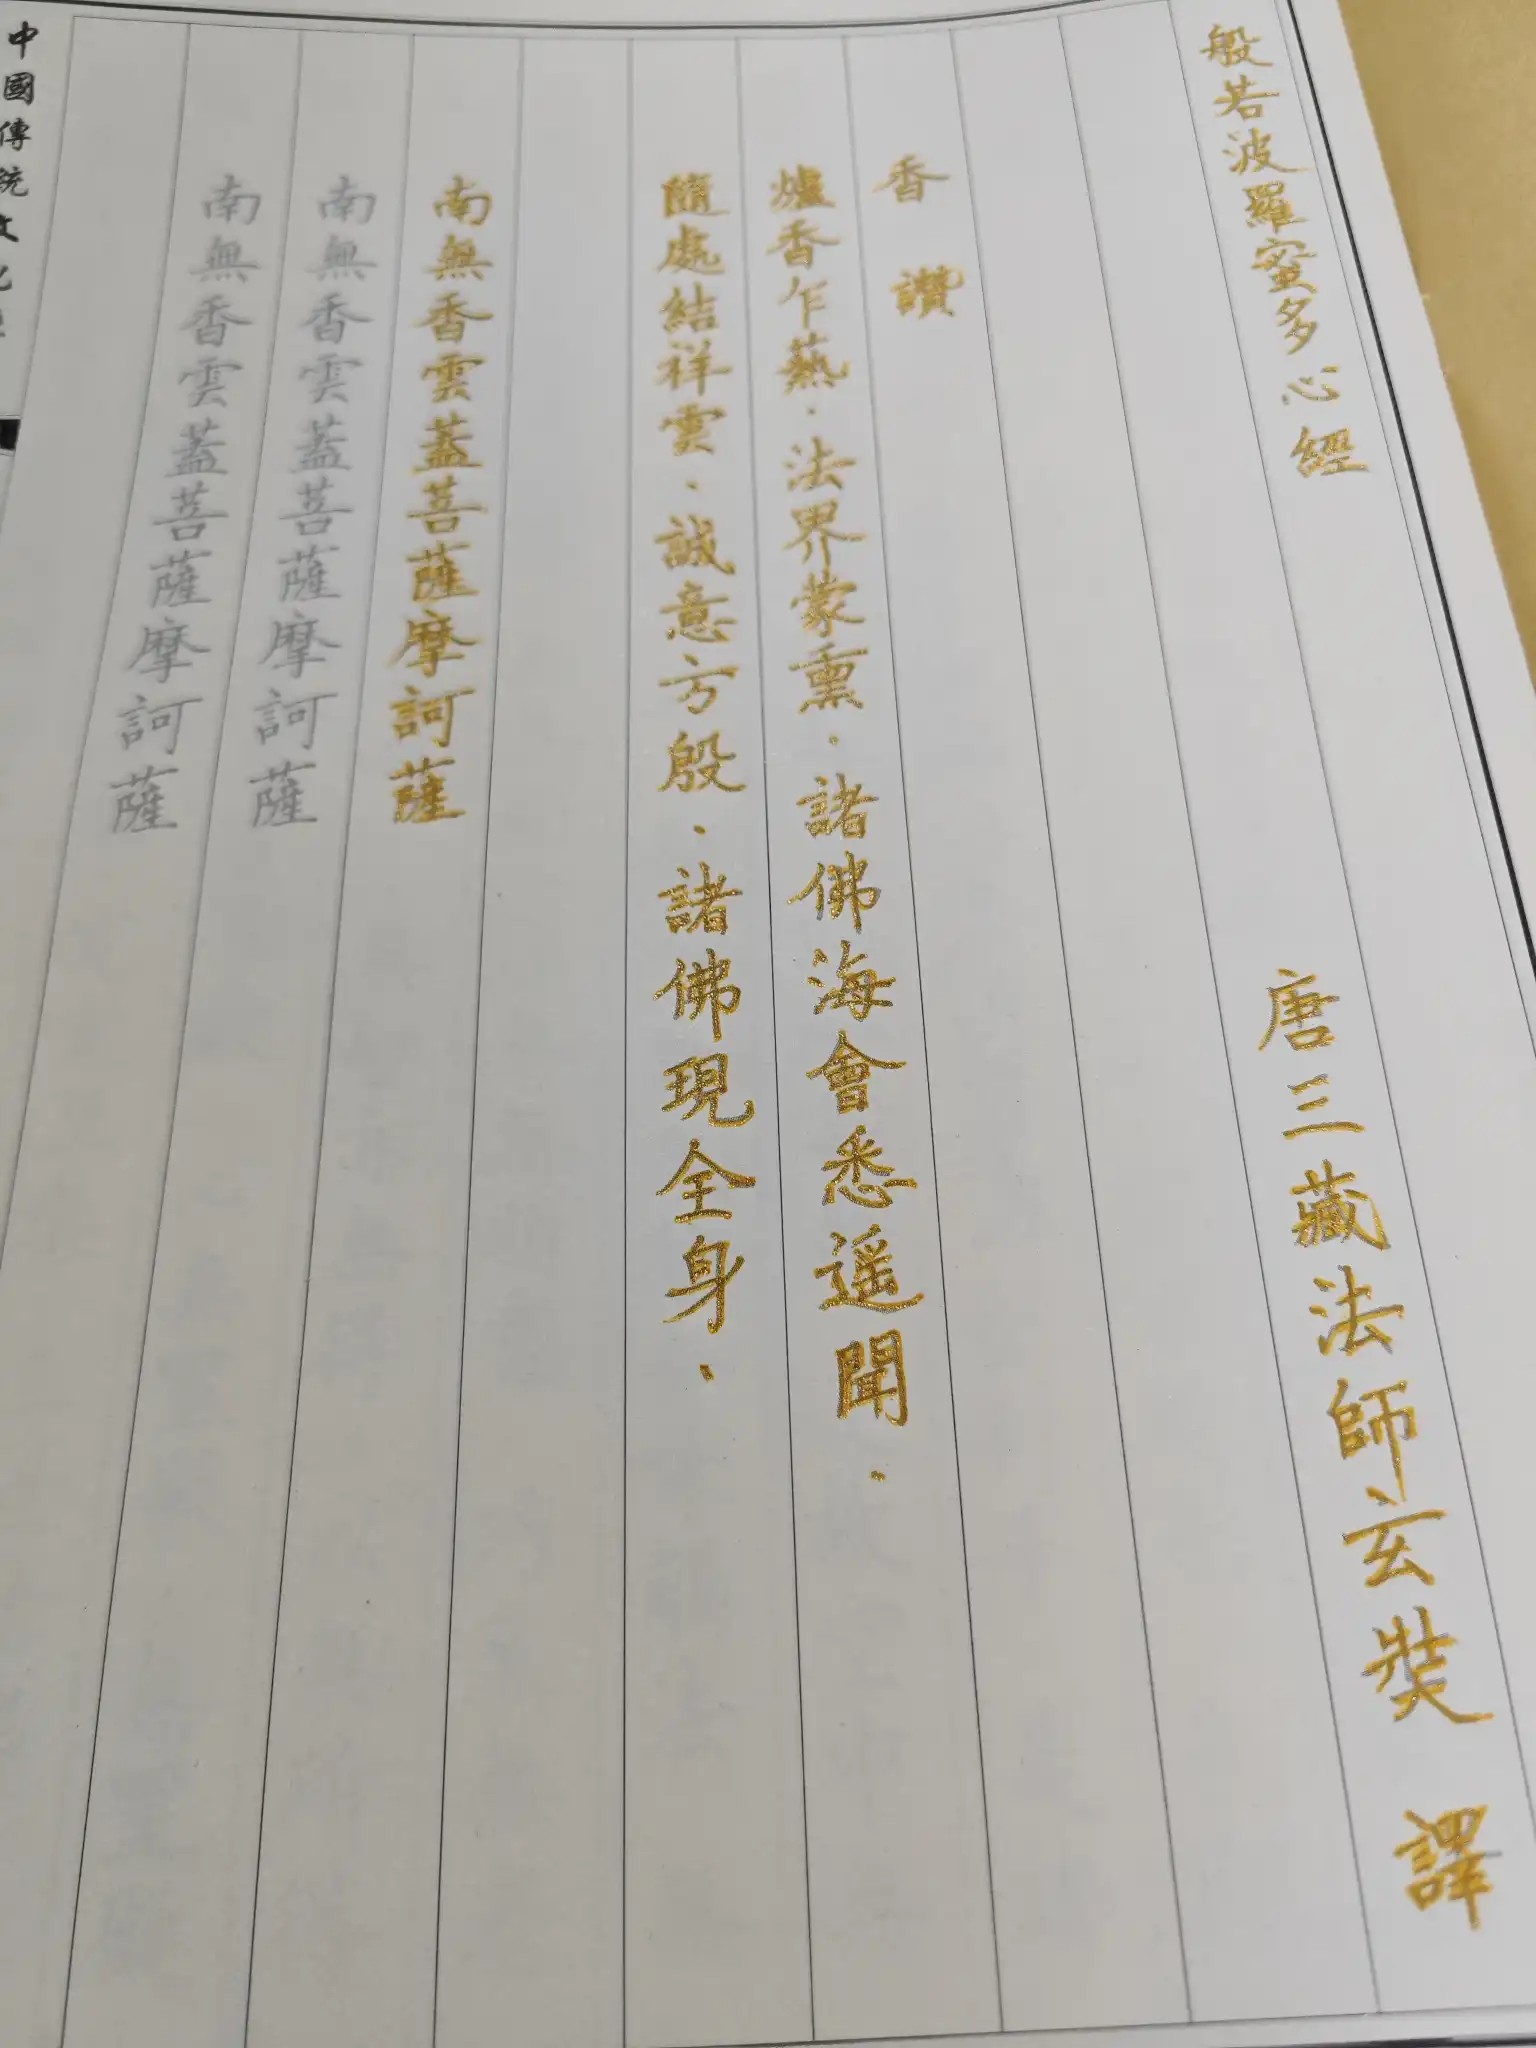 般若波羅蜜多心經
唐三藏法師玄奘 譯
香 讚
爐香乍爇．法界蒙熏．諸佛海會悉遥聞．
隨處結祥雲．誠意方殷．諸佛現全身．
南無香雲蓋菩薩摩訶薩
南無香雲蓋菩薩摩訶薩
南無香雲蓋菩薩摩訶薩
中國傳統文化